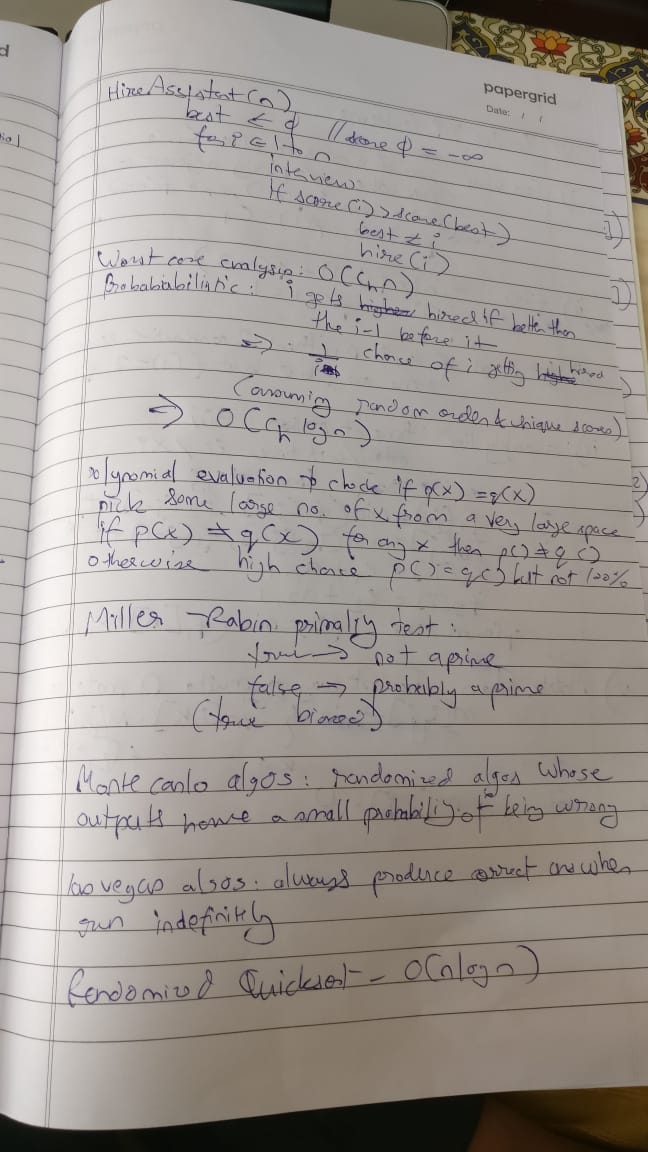 papergrid
Date: / /
HireAssistant(n)
best ← φ //score φ = -∞
for i ∈ 1 to n
interview
if score(i) > score(best)
best ← i
hire(i)
Worst case analysis: O(Ch n)
Probababilistic: i gets higher hired if better than
the i-1 before it
⇒ 1/i chance of i getting hired
(assuming random order & unique scores)
⇒ O(Ch log n)
Polynomial evaluation to check if p(x) = q(x)
pick some large no. of x from a very large space
if p(x) ≠ q(x) for any x then p() ≠ q()
otherwise high chance p() = q() but not 100%
Miller-Rabin primality test:
true → not a prime
false → probably a prime
(true biased)
Monte carlo algos: randomized algos whose
outputs have a small probability of being wrong
las vegas algos: always produce correct ans when
run indefinitely
Randomized Quicksort - O(n log n)